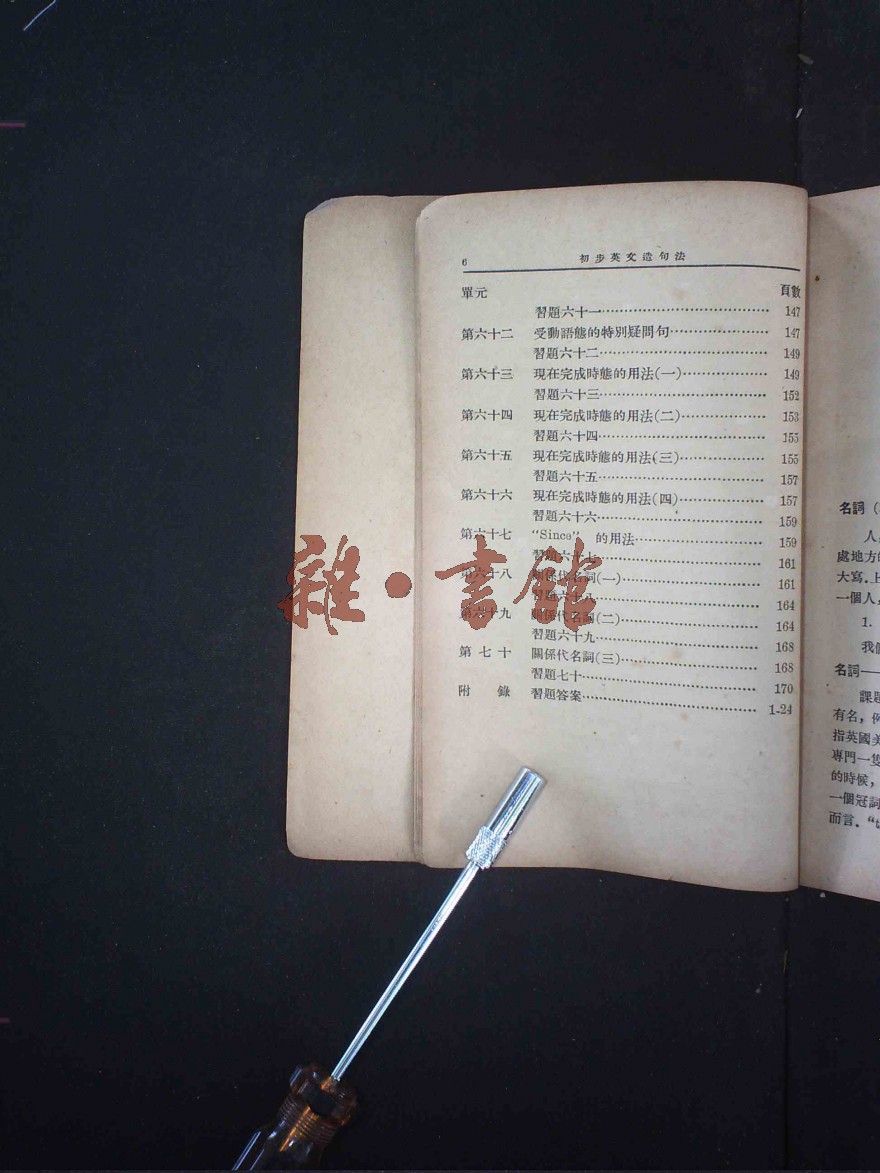 6 初步英文造句法
單元 頁數
習題六十一 147
第六十二 受動語態的特別疑問句 147
習題六十二 149
第六十三 現在完成時態的用法(一) 149
習題六十三 152
第六十四 現在完成時態的用法(二) 153
習題六十四 155
第六十五 現在完成時態的用法(三) 155
習題六十五 157
第六十六 現在完成時態的用法(四) 157
習題六十六 159
第六十七 "Since" 的用法 159
習題六十七 161
第六十八 關係代名詞(一) 161
習題六十八 164
第六十九 關係代名詞(二) 164
習題六十九 168
第七十 關係代名詞(三) 168
習題七十 170
附錄 習題答案 1-24
雜·書館
名詞(
人
處地方
大寫.上
一個人,
1.
我個
名詞——
課題
有名,例
指英國美
專門一隻
的時候,
一個冠詞
而言.